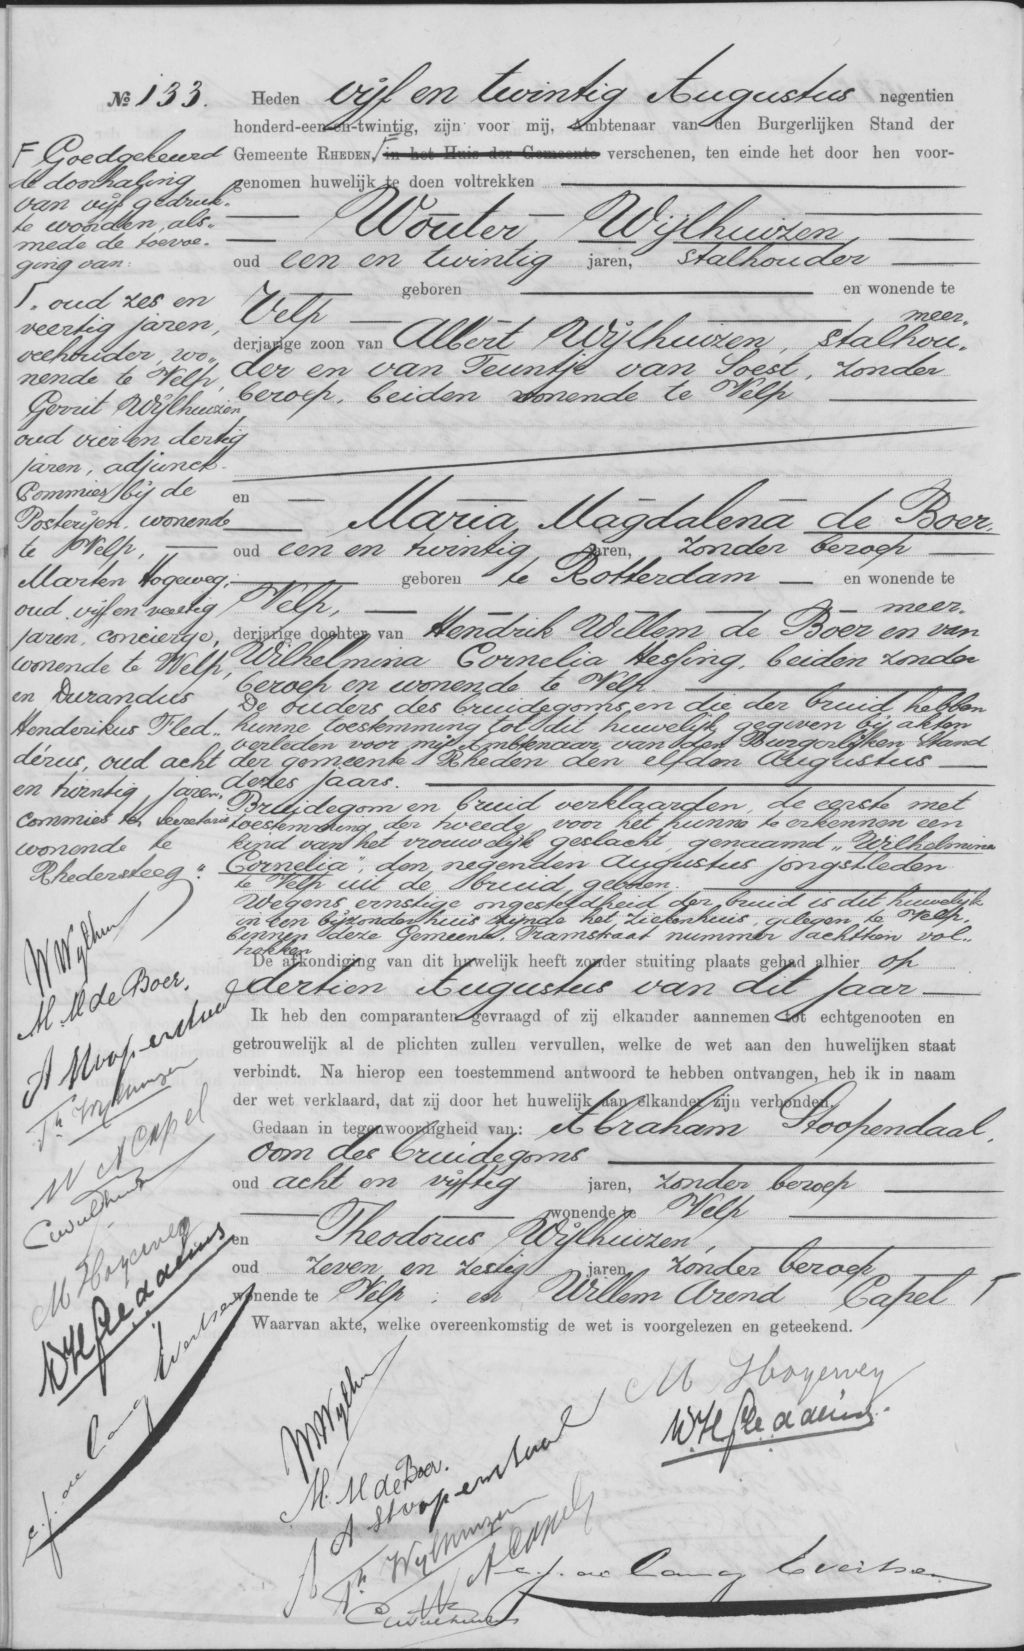 № 133.
Heden vijf en twintig Augustus negentien
honderd-een-en-twintig, zijn voor mij, Ambtenaar van den Burgerlijken Stand der
Gemeente RHEDEN, F in het Huis der Gemeente verschenen, ten einde het door hen voor-
genomen huwelijk te doen voltrekken
Wouter Wijlhuizen
oud een en twintig jaren, stalhouder
geboren en wonende te
Velp meer-
derjarige zoon van Albert Wijlhuizen, stalhou-
der en van Teuntje van Soest, zonder
beroep, beiden wonende te Velp
en
Maria Magdalena de Boer.
oud een en twintig jaren, zonder beroep
geboren te Rotterdam en wonende te
Velp, meer-
derjarige dochter van Hendrik Willem de Boer en van
Wilhelmina Cornelia Hessing, beiden zonder
beroep en wonende te Velp.
De ouders des bruidegoms en die der bruid hebben
hunne toestemming tot dit huwelijk gegeven bij akten
verleden voor mij Ambtenaar van den Burgerlijken Stand
der gemeente Rheden den elfden Augustus
dezes jaars.
Bruidegom en bruid verklaarden, de eerste met
toestemming der tweede, voor het hunne te erkennen een
kind van het vrouwelijk geslacht, genaamd "Wilhelmina
Cornelia", den negenden Augustus jongstleden
te Velp uit de bruid geboren.
Wegens ernstige ongesteldheid der bruid is dit huwelijk
in een bijzonder huis zijnde het ziekenhuis, gelegen te Velp,
binnen deze Gemeente, Tramstraat nummer achttien vol-
trokken
De afkondiging van dit huwelijk heeft zonder stuiting plaats gehad alhier op
dertien Augustus van dit jaar
Ik heb den comparanten gevraagd of zij elkander aannemen tot echtgenooten en
getrouwelijk al de plichten zullen vervullen, welke de wet aan den huwelijken staat
verbindt. Na hierop een toestemmend antwoord te hebben ontvangen, heb ik in naam
der wet verklaard, dat zij door het huwelijk aan elkander zijn verbonden.
Gedaan in tegenwoordigheid van: Abraham Stoopendaal,
oom des bruidegoms
oud acht en vijftig jaren, zonder beroep
wonende te Velp
en Theodorus Wijlhuizen,
oud zeven en zestig jaren zonder beroep
wonende te Velp ; en Willem Arend Capel T
Waarvan akte, welke overeenkomstig de wet is voorgelezen en geteekend.
F Goedgekeurd
de doorhaling
van vijf gedruk-
te woorden, als-
mede de toevoe-
ging van:
T. oud zes en
veertig jaren,
veehouder, wo-
nende te Velp,
Gerrit Wijlhuizen
oud vier en dertig
jaren, adjunct-
Commies bij de
Posterijen, wonende
te Velp,
Marten Hogeweg,
oud vijf en veertig
jaren, conciërge,
wonende te Velp,
en Durandus
Henderikus Fled-
dérus, oud acht
en twintig jaren
commies ter Secretarie
wonende te
Rhedersteeg".
W Wylhui
M. M de Boer.
A Stoopendaal
Th Wylhuizen
W A Capel
M Hogeweg
DHFleddérus
W Wylhui
M. M de Boer.
A Stoopendaal
Th Wylhuizen
W A Capel
M Hogeweg
DHFleddérus.